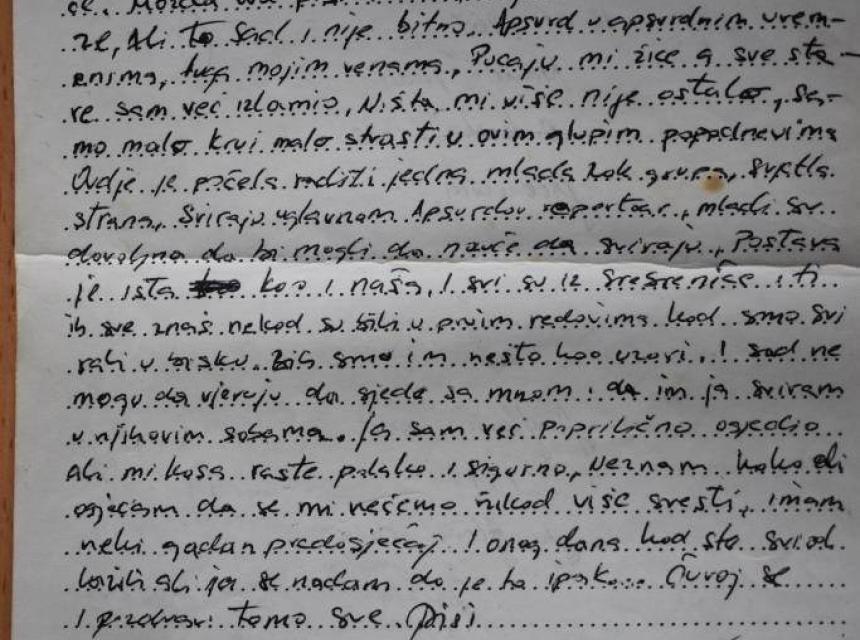 će. Možda
ze, Ali to sad i nije bitno. Apsurd u apsurdnim vrem-
enima, tuga mojim venama, Pucaju mi žice a sve sta-
re sam već izlamio, Ništa mi više nije ostalo, sa-
mo malo krvi malo strasti u ovim glupim popodnevima
Ovdje je počela raditi jedna mlada rok grupa, svjetla
strana, Sviraju uglavnom Apsurdov repertoar, mladi su
dovoljno da bi mogli da nauče da sviraju, Postava
je ista kao i naša, I svi su iz Srebrenice i ti
ih sve znaš nekad su bili u prvim redovima kad smo svi
rali u Bih smo im nešto kao uzori. I sad ne
mogu da vjeruju da sjede sa mnom i da im ja sviram
u njihovim sobama. Ja sam već poprilično osjedio
Ali mi kosa raste polako i sigurno, Neznam kako ali
osjećam da se mi nećemo nikad više sresti, imam
neki gadan predosjećaj I onog dana kad sto
ali ja se nadam da je to ipak... Čuvaj se
I pozdravi tamo sve Pisi